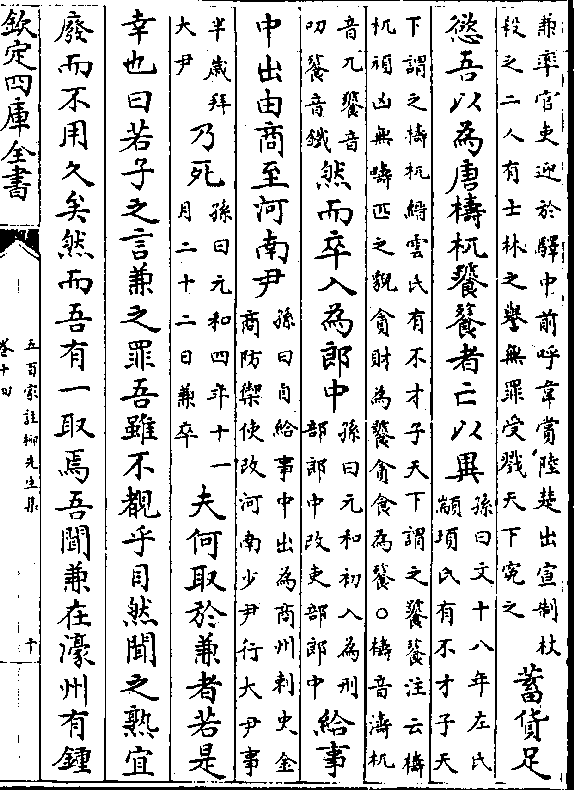 兼率官吏迎於驛中前呼韋賞陸楚出宣制杖
殺之二人有士林之譽無罪受戮天下寃之
蓄貨足
慾吾以為唐檮杌饕餮者亡以異
孫曰文十八年左氏
顓頊氏有不才子天
下謂之檮杌縉雲氏有不才子天下謂之饕餮注云檮
杌頑凶無疇匹之貌貪財為饕貪食為餮○檮音濤杌
音兀饕音
叨餮音鐵
然而卒入為郎中
孫曰元和初入為刑
部郎中改吏部郎中
給事
中出由商至河南尹
孫曰自給事中出為商州刺史金
商防禦使改河南少尹行大尹事
半歲拜
大尹
乃死
孫曰元和四年十一
月二十二日兼卒
夫何取於兼者若是
幸也曰若子之言兼之罪吾雖不覩乎目然聞之熟宜
廢而不用久矣然而吾有一取焉吾聞兼在濠州有鍾
欽定四庫全書
五百家註柳先生集
卷十四
十